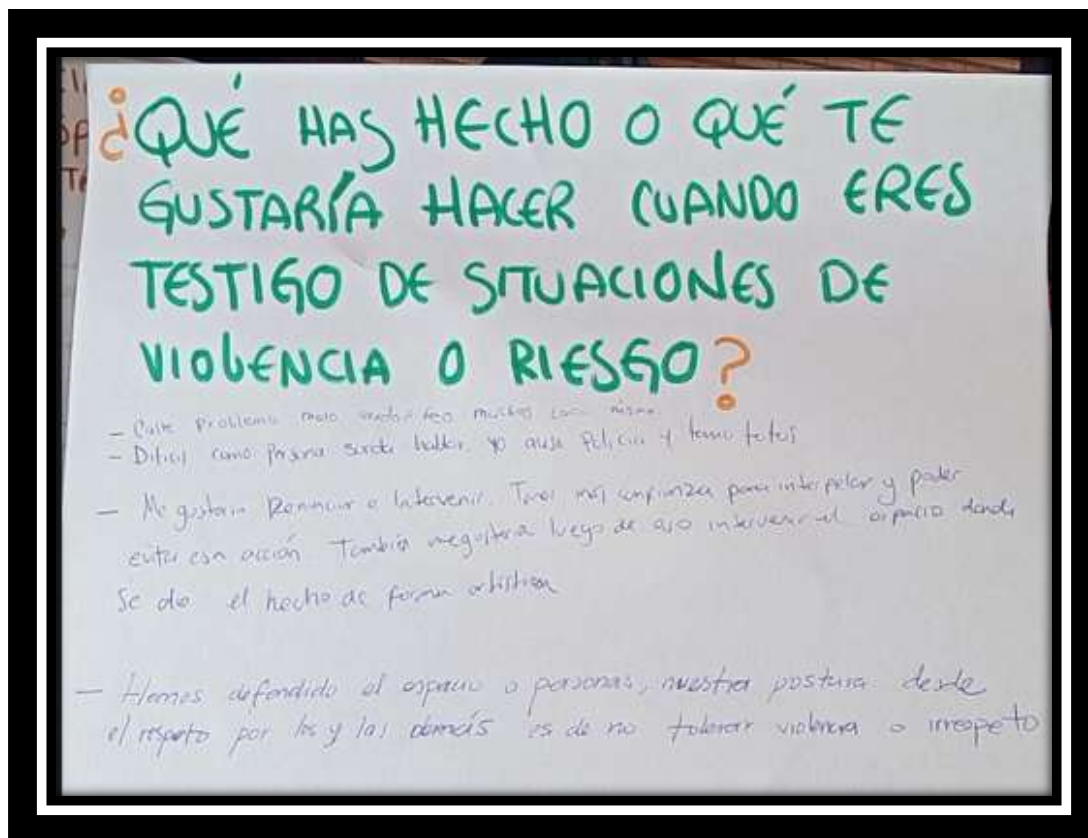 ¿QUÉ HAS HECHO O QUÉ TE
GUSTARÍA HACER CUANDO ERES
TESTIGO DE SITUACIONES DE
VIOLENCIA O RIESGO?
- problema malo feo muchos
- Dificil como persona sorda hablar. yo policia y
- Me gustaria o Intervenir. Tener más confianza para interpelar y poder
evitar esa acción También me gustaria luego de eso intervenir el espacio donde
Se dio el hecho de forma artistica
- Hemos defendido el espacio o personas, nuestra postura desde
el respeto por los y las demás es de no tolerar violencia o irrespeto